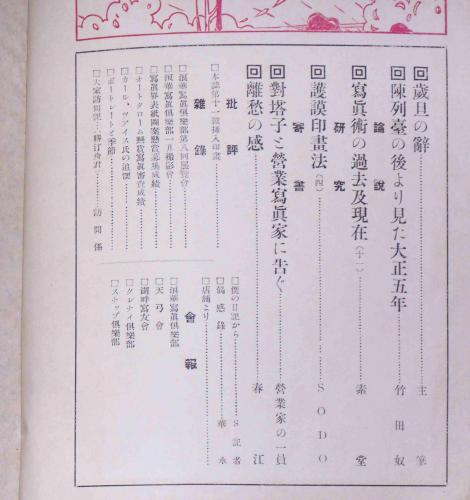 回歲旦の辭……主筆
回陳列臺の後より見た大正五年……竹田奴
論説
回寫眞術の過去及現在(十一)……素堂
研究
回護謨印畫法(四)……SODO
寄書
回對塔子と營業寫眞家に吿ぐ……營業家の一員
回離愁の感……春江
批評
□本誌第十一號挿入印畫
雜錄
□浪華寫眞俱樂部第八回展覽會
□浪華寫眞俱樂部一日撮影會
□寫眞界表紙圖案懸賞募集成績
□オートクローム懸賞寫眞審査成績
□カール、ツアイス氏の追懷
□ポートレートと季節
□大家訪問記……訪問係
□僕の日記から……S記者
□偶感錄……華水
□店鋪より
會報
□浪華寫眞俱樂部
□天弓會
□湖畔寫友會
□クレナイ俱樂部
□スナップ俱樂部